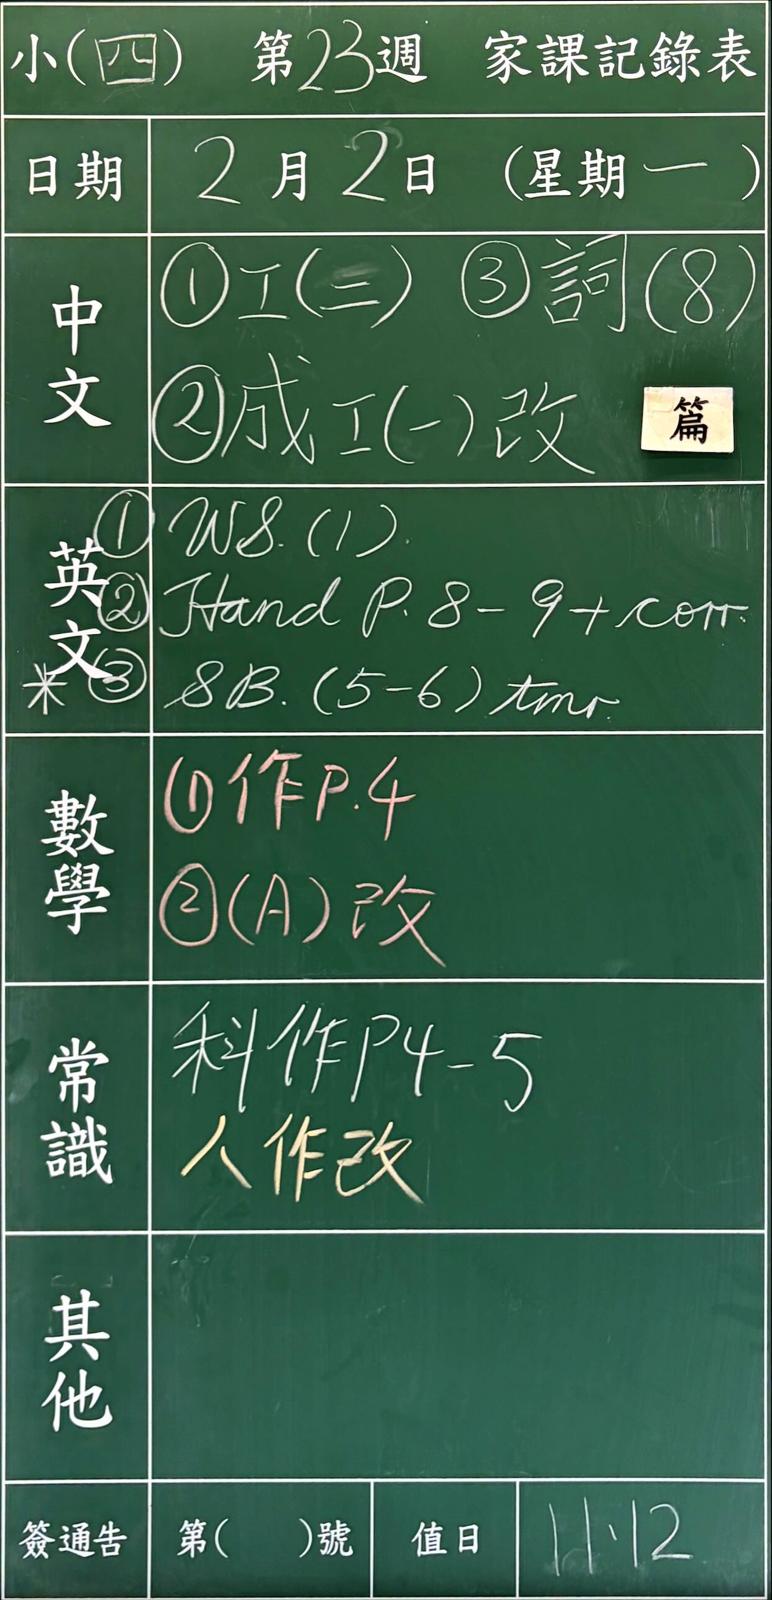 小(四) 第23週 家課記錄表
日期 2月2日 (星期一)
中文 ①工(三) ③詞(8)
②成工(一)改 篇
英文 ① WS.(1).
② Hand P.8-9+corr.
*③ SB.(5-6) tmr.
數學 ①作P.4
②(A)改
常識 科作P4-5
人作改
其他
簽通告 第( )號 值日 11·12